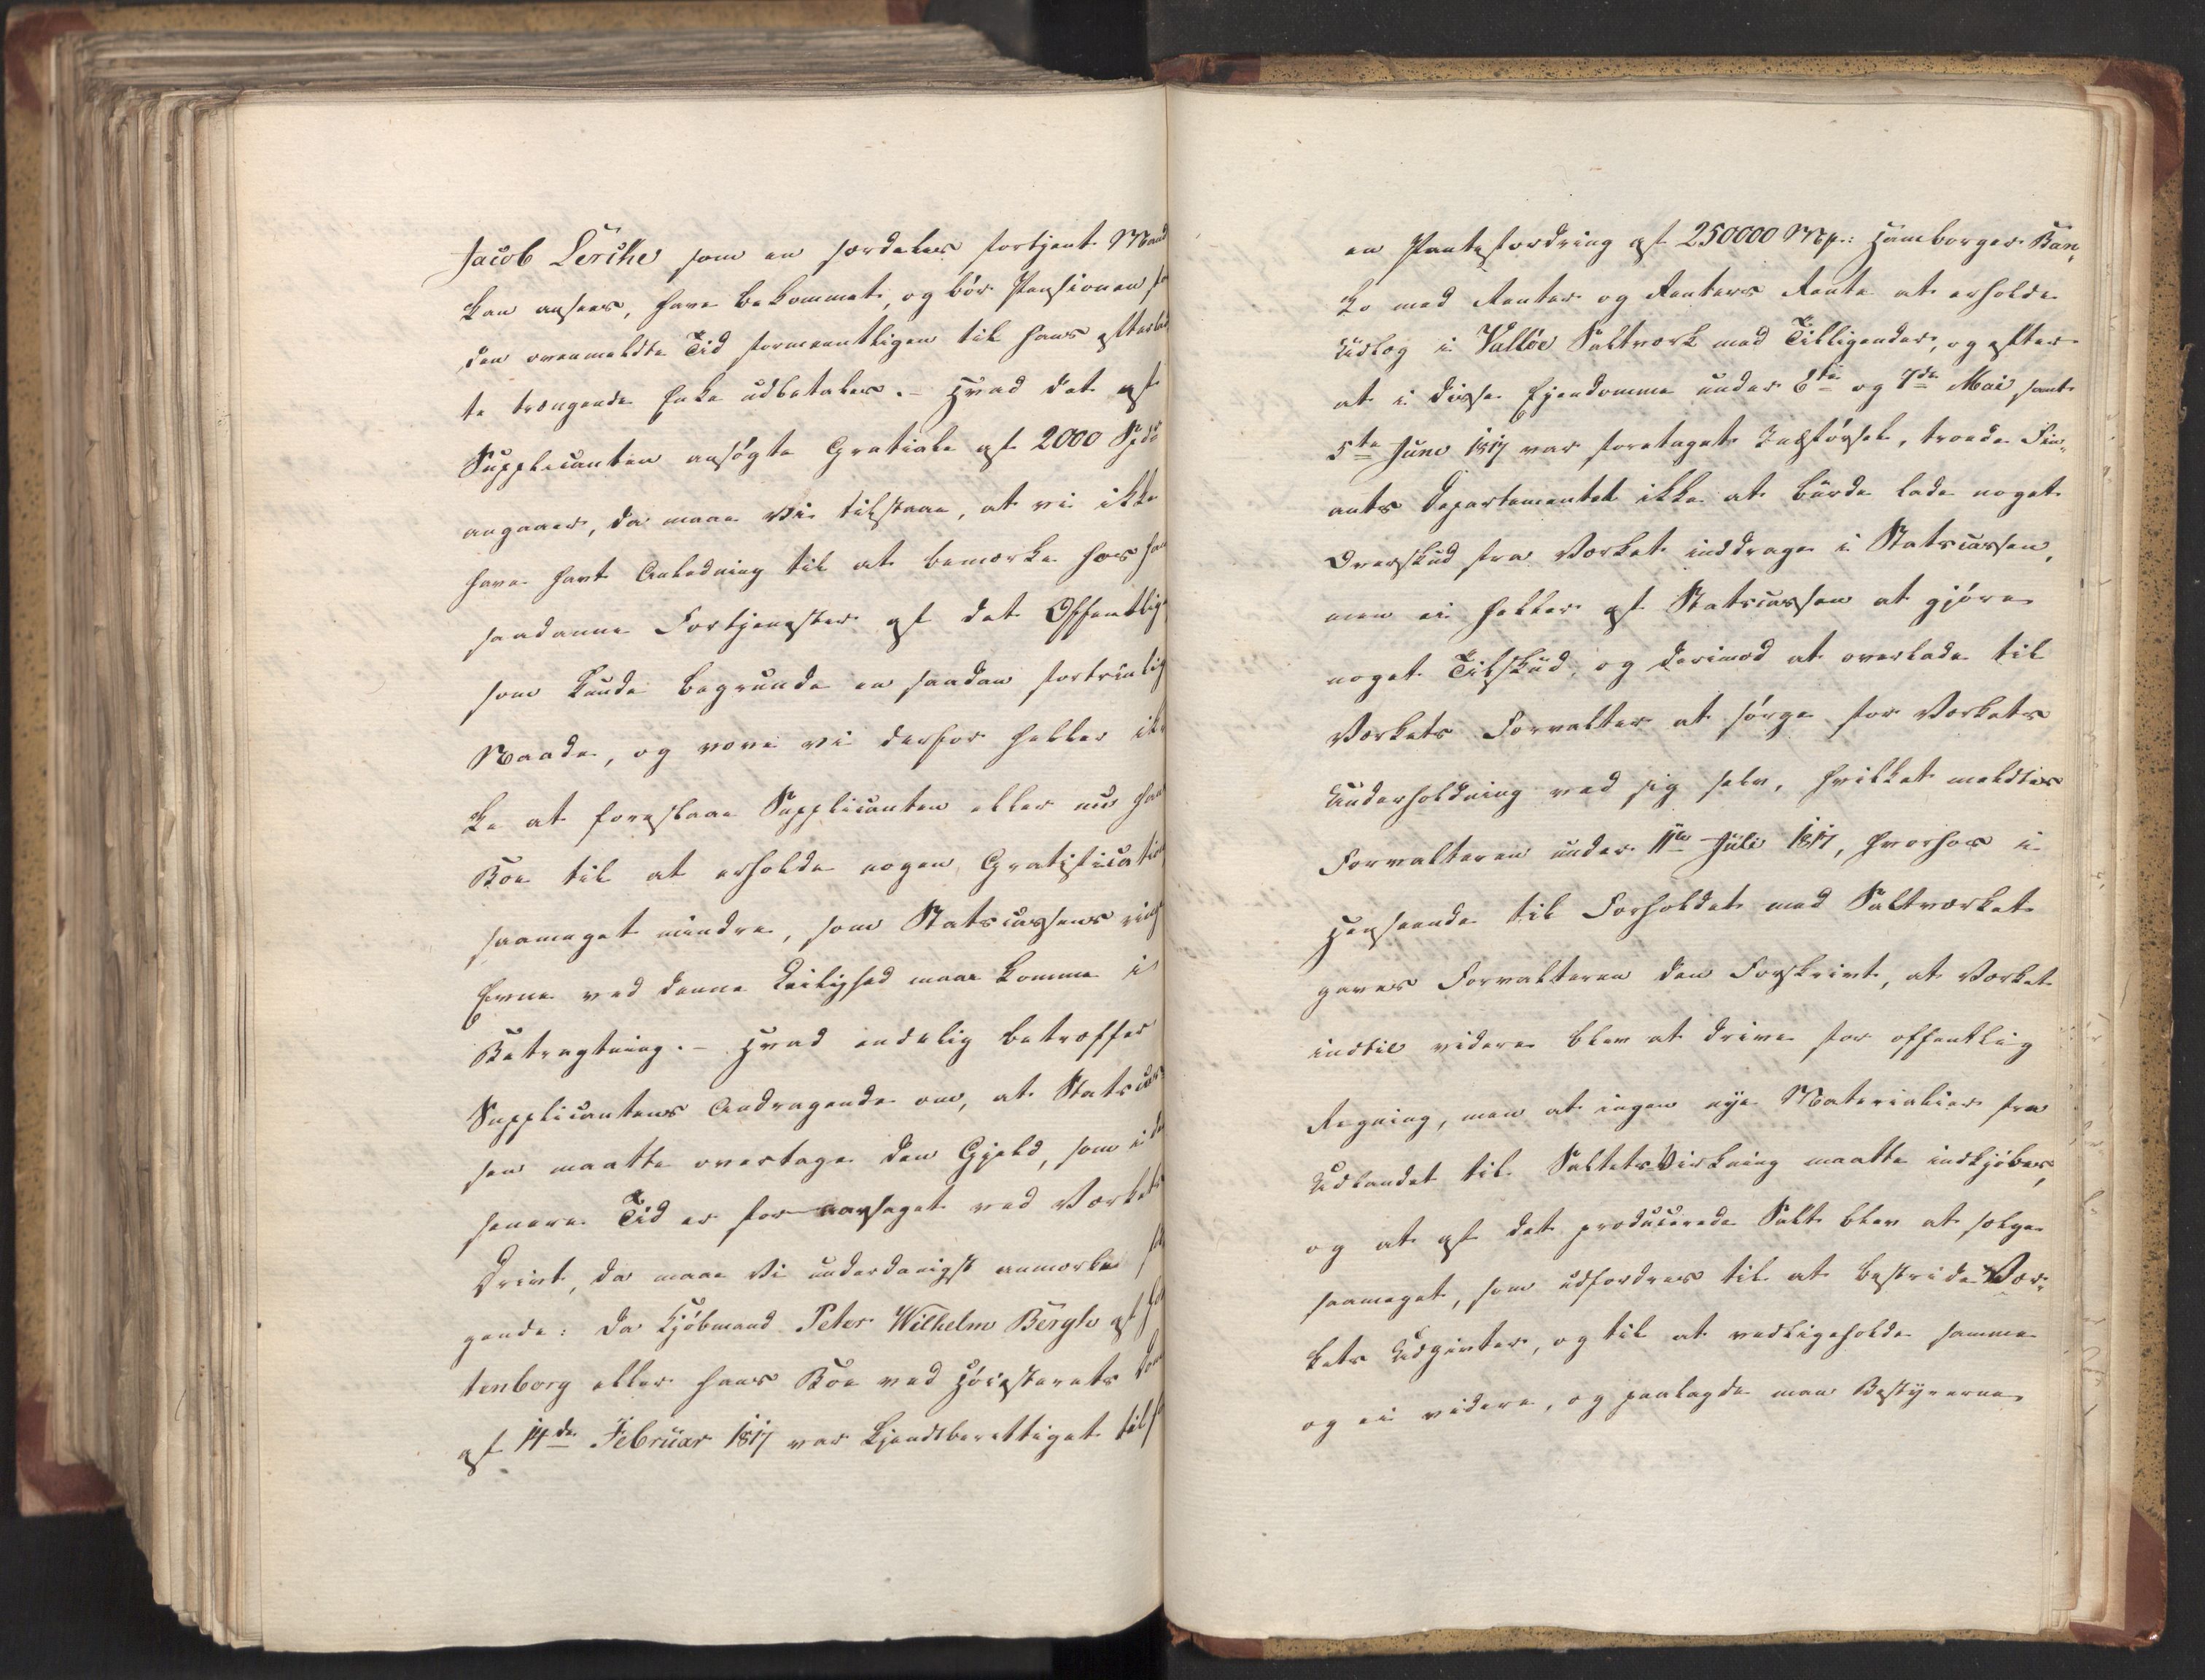 Jacob Lerche som en særdeles fortjent Mand
kan ansees, have bekommet, og bør Pensionen for
den ovenmeldte Tid formeentligen til hans efterlad
te trængende Enke udbetales. - Hvad det af
Supplicanten ansøgte Gratiale af 2000 Spdr
angaaer, da maae Vi tilstaae, at vi ikke
have havt Anledning til at bemærke hos ham
saadanne Fortjenester af det Offentlige
som kunde begrunde en saadan fortrinlig
Naade, og vove vi derfor heller ik
ke at foreslaae Supplicanten eller nu hans
Boe til at erholde nogen Gratification
saameget mindre, som Statscassens ringe
Evne ved denne Leilighed maae komme i
Betragtning. - Hvad endelig betræffer
Supplicantens Andragende om, at Statscas
sen maatte overtage den Gjeld, som i den
senere Tid er foraarsaget ved Værkets
Drivt, da maae Vi underdanigst anmærke føl
gende: Da Kjøbmand Peter Wilhelm Bergh af Hol
tenborg eller hans Boe ved Høiesterets Dom
af 14de Februar 1817 var kjendt berettiget til for
en Pantefordring af 250000 Mp.: Hamborger Ban,
ko med Renter og Renters Rente at erholde
Udlæg i Valløe Saltværk med Tilligender, og efter
at i disse Ejendomme under 6te og 7de Mai samt
5te Juni 1817 var foretaget Indførsel, troede Fin,
ants Departementet ikke at burde lade noget
Overskud fra Værket inddrage i Statscassen,
men ei heller af Statscassen at gjøre
noget Tilskud, og derimod at overlade til
Værkets Forvalter at sørge for Værkets
Underholdning ved sig selv, hvilket meldtes
Forvalteren under 11te Juli 1817, hvorhos i
Henseende til Forholdet med Saltværket
gaves Forvalteren den Forskrivt, at Værket
indtil videre blev at drive for offentlig
Regning, men at ingen nye Materialier fra
Udlandet til Saltets Virkning maatte indkjøbes,
og at af det producerede Salt blev at sælge
saameget, som udfordres til at bestride Vær,
kets Udgivter, og til at vedligeholde samme
og ei videre, og paalagde man Bestyrerne